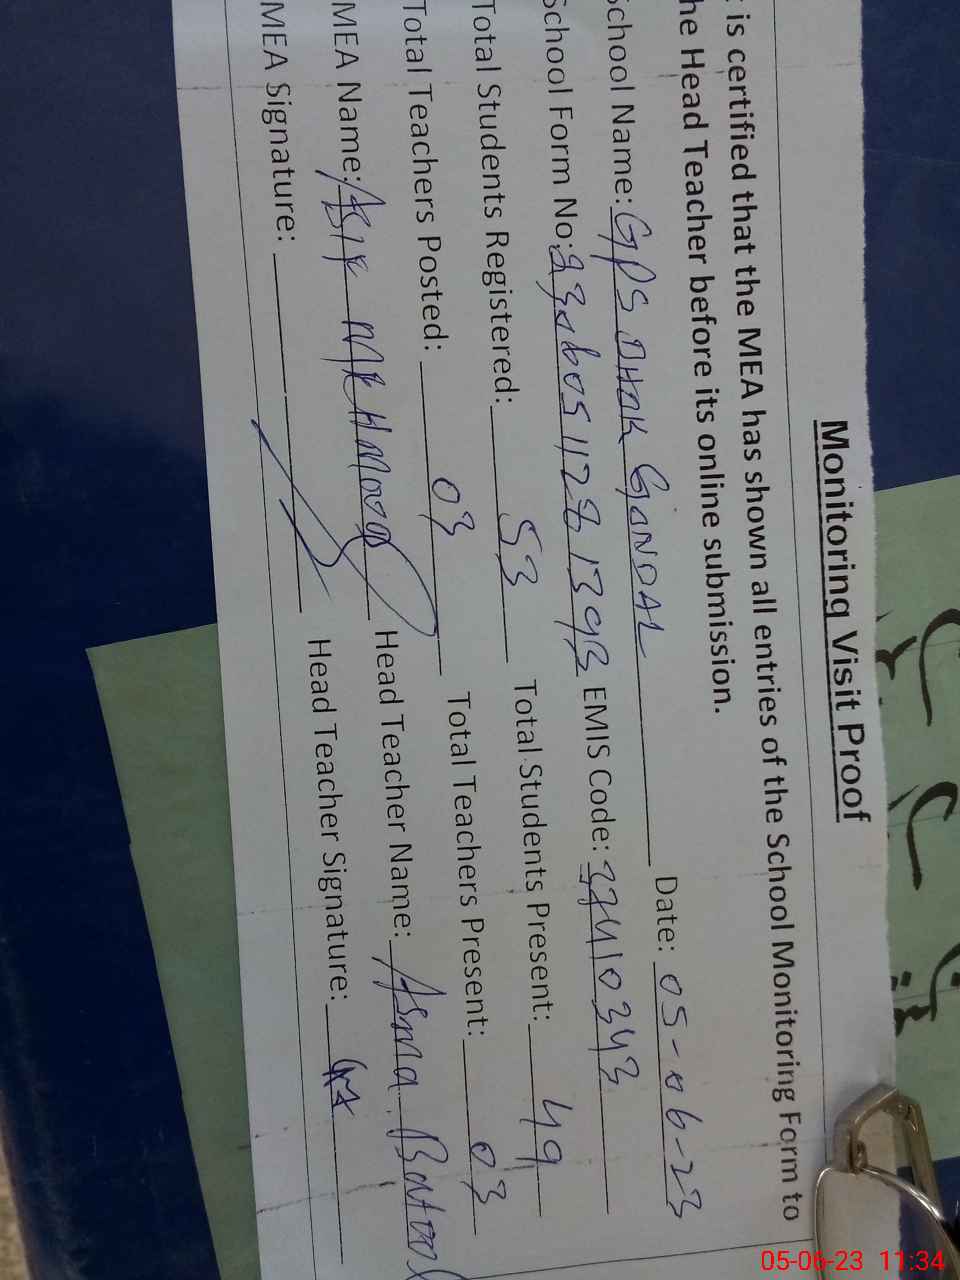 Monitoring Visit Proof
is certified that the MEA has shown all entries of the School Monitoring Form to
he Head Teacher before its online submission.
School Name: GPS DHOK GONDAL Date: 05-06-23
School Form No: EMIS Code:
Total Students Registered: 53 Total Students Present: 49
Total Teachers Posted: 03 Total Teachers Present: 03
MEA Name: Asif MEHMood Head Teacher Name: Asma Batool
MEA Signature: Head Teacher Signature:
05-06-23 11:34